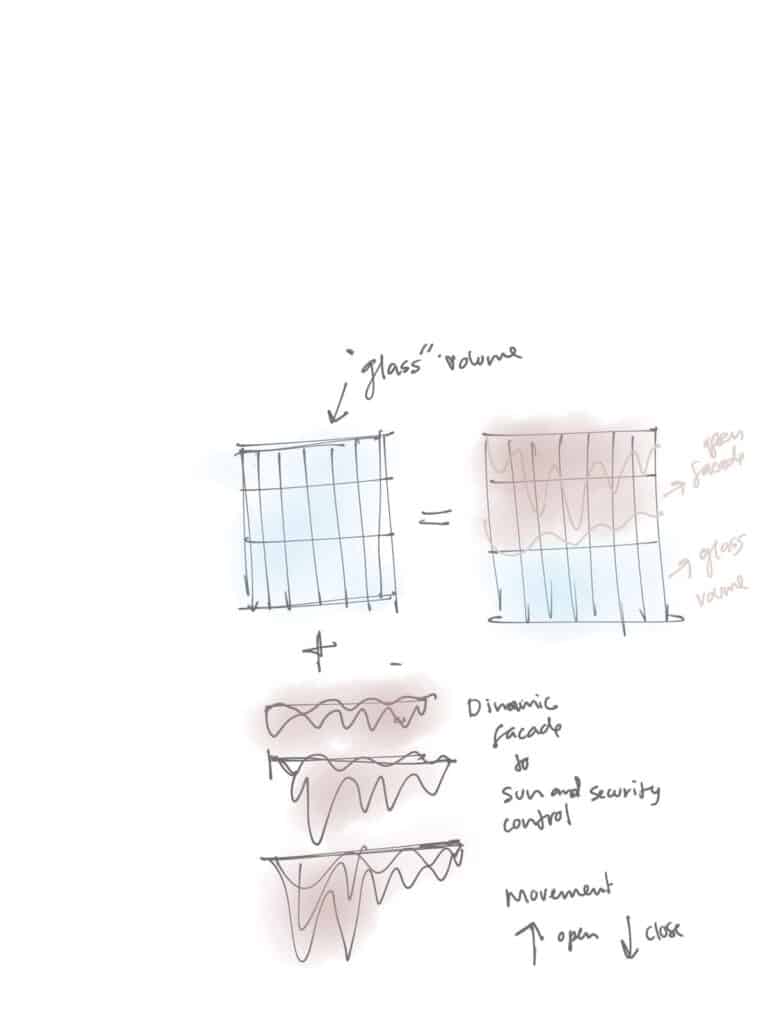 "glass" volume
open
facade
=
glass
volume
+
-
Dinamic
facade
to
sun and security
control
Movement
↑ open ↓ close